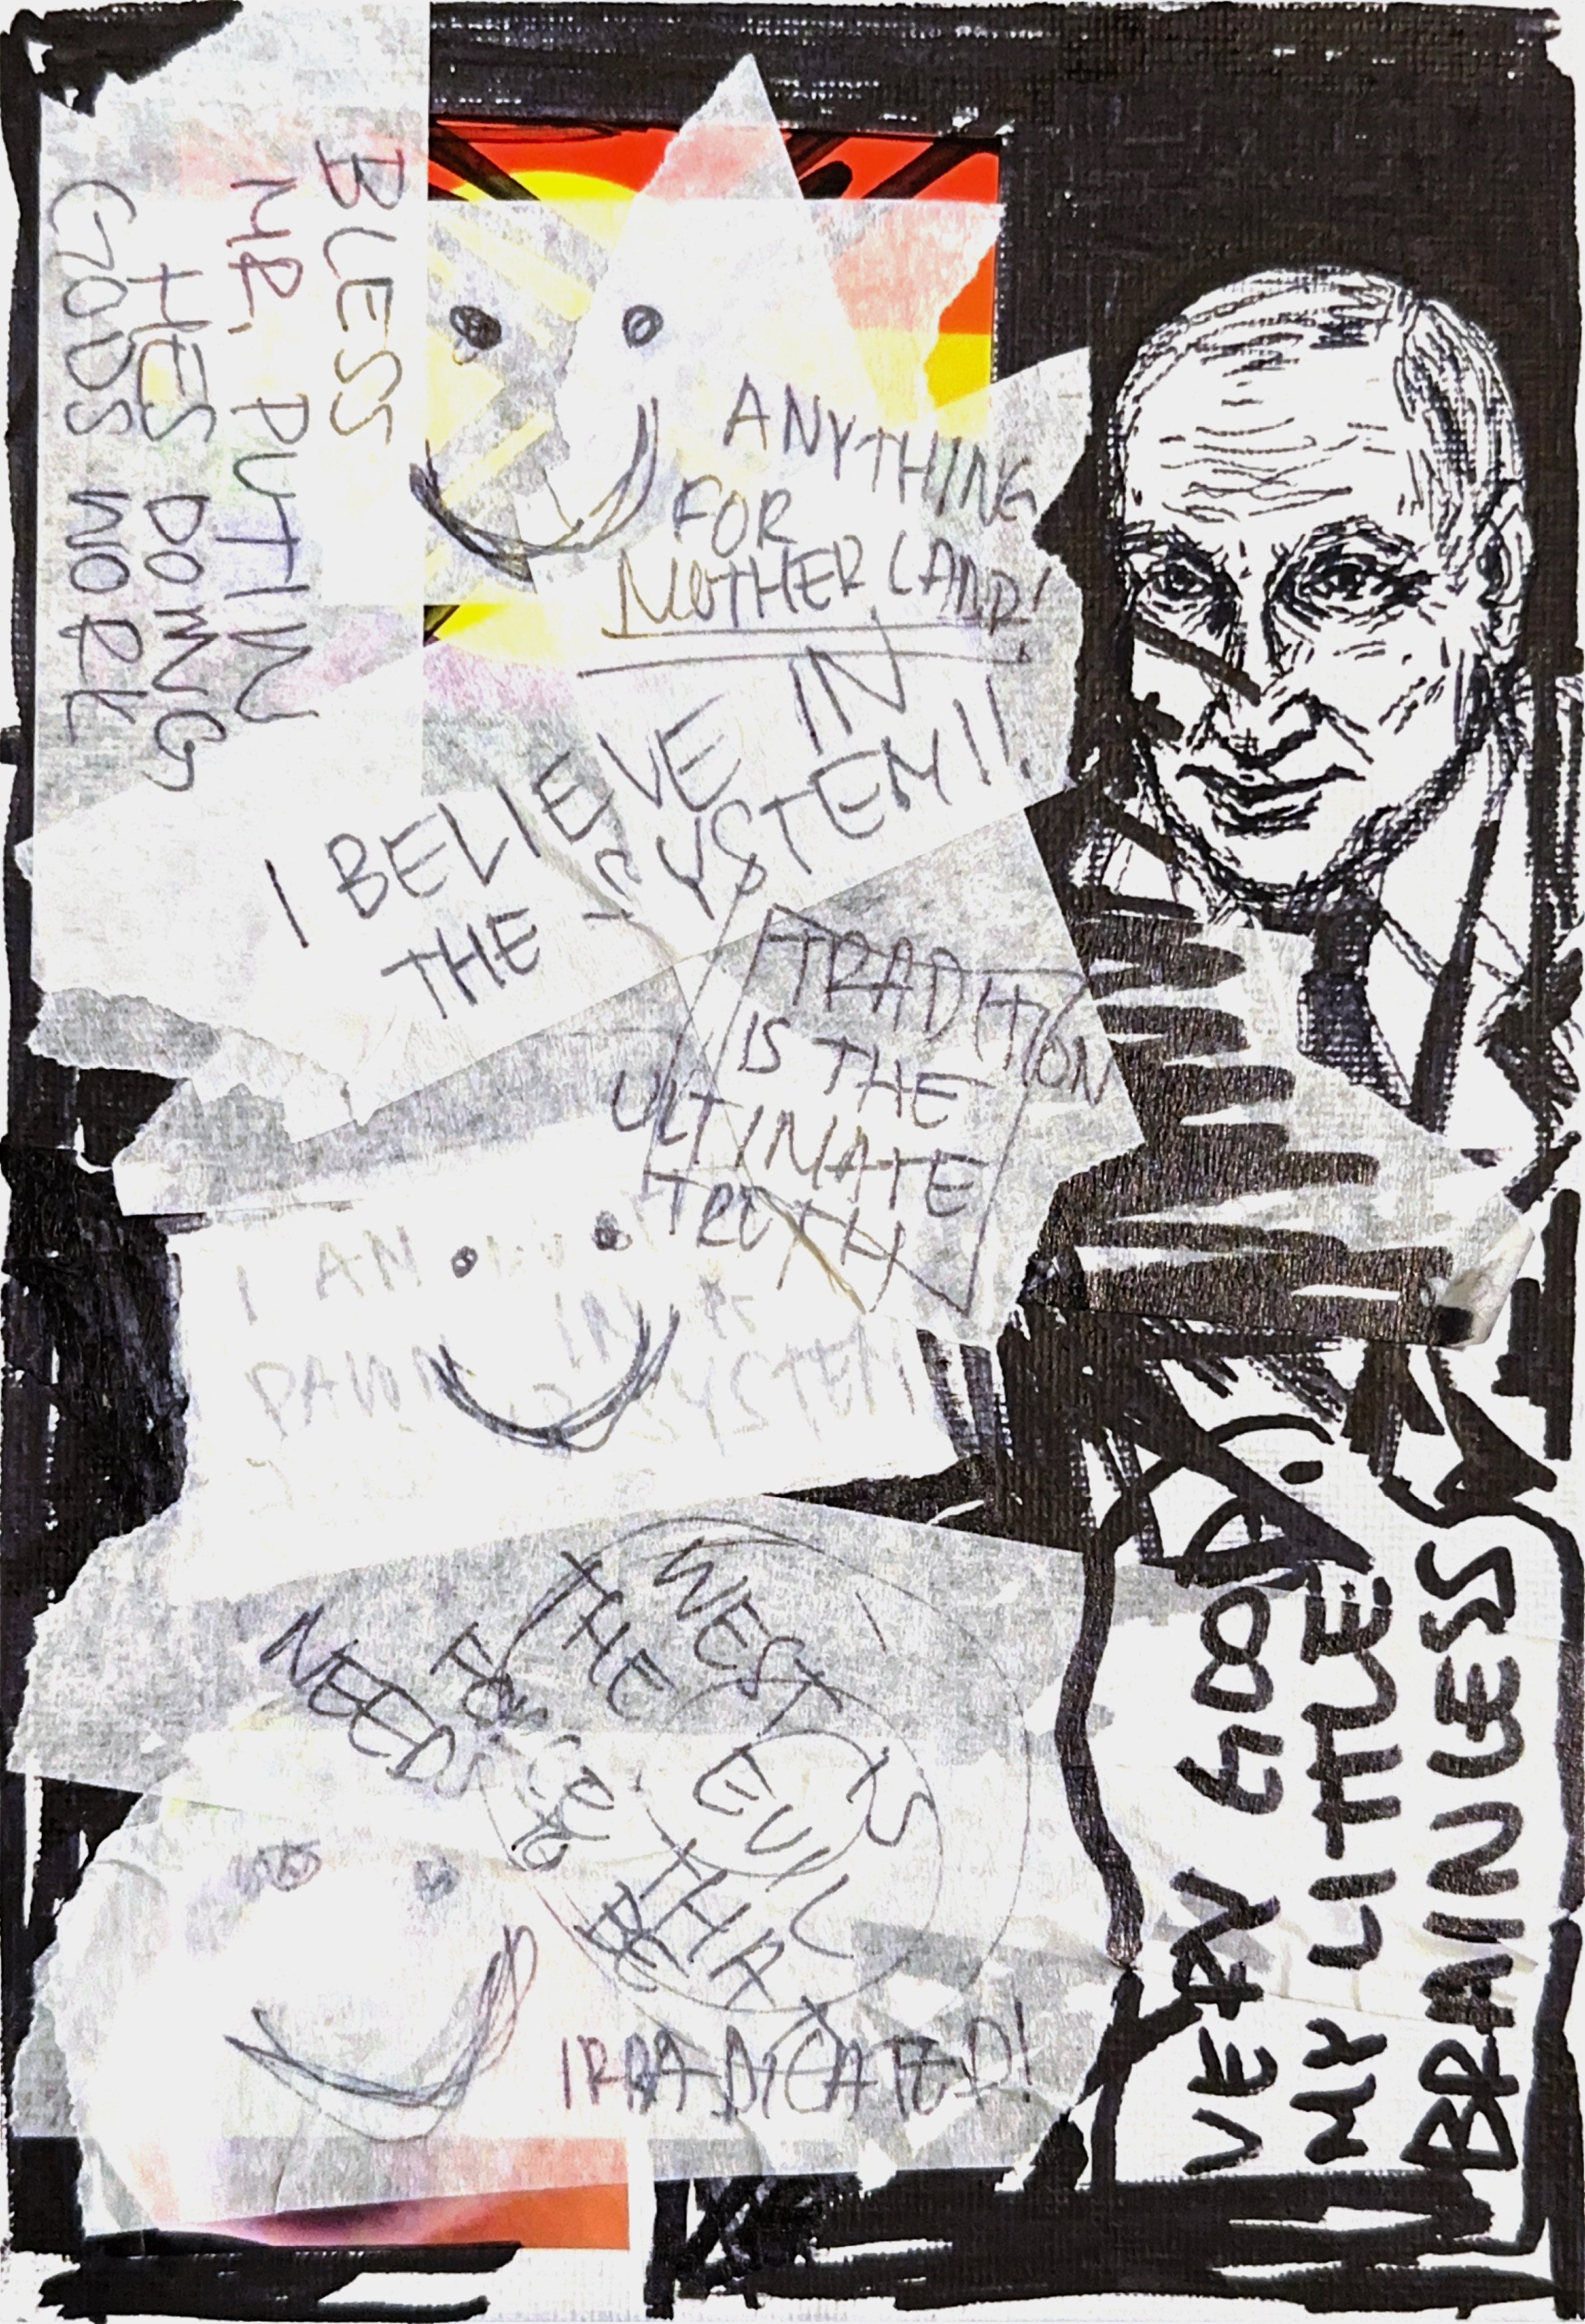 BLESS
MR. PUTIN
HES DOING
GODS WORK
ANYTHING
FOR
MOTHERLAND!
I BELIEVE IN
THE SYSTEM!!
TRADITION
IS THE
ULTIMATE
TRUTH
I AM IN A
PAWN SYSTEM
WEST IS
THE EVIL
FORCE THAT
NEEDS TO BE
IRRADICATED!
VERY GOOD
MY LITTLE
BRAINLESS